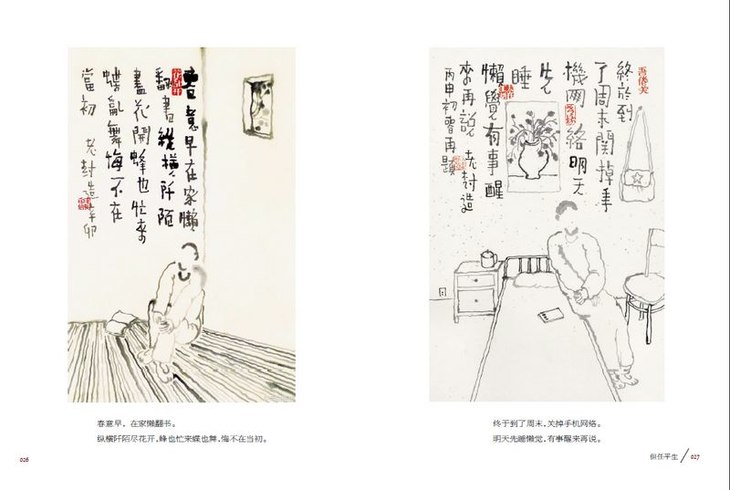 春意早在家懶
翻書縱橫阡陌
盡花開蜂也忙來
蝶亂舞悔不在
當初 老封造辛卯
春意早，在家懒翻书。
纵横阡陌尽花开，蜂也忙来蝶也舞，悔不在当初。
026
終於到
了周末關掉手
機网絡明天
先
睡
懶覺有事醒
來再說 老封造
丙申初再題
终于到了周末，关掉手机网络。
明天先睡懒觉，有事醒来再说。
但任平生 / 027